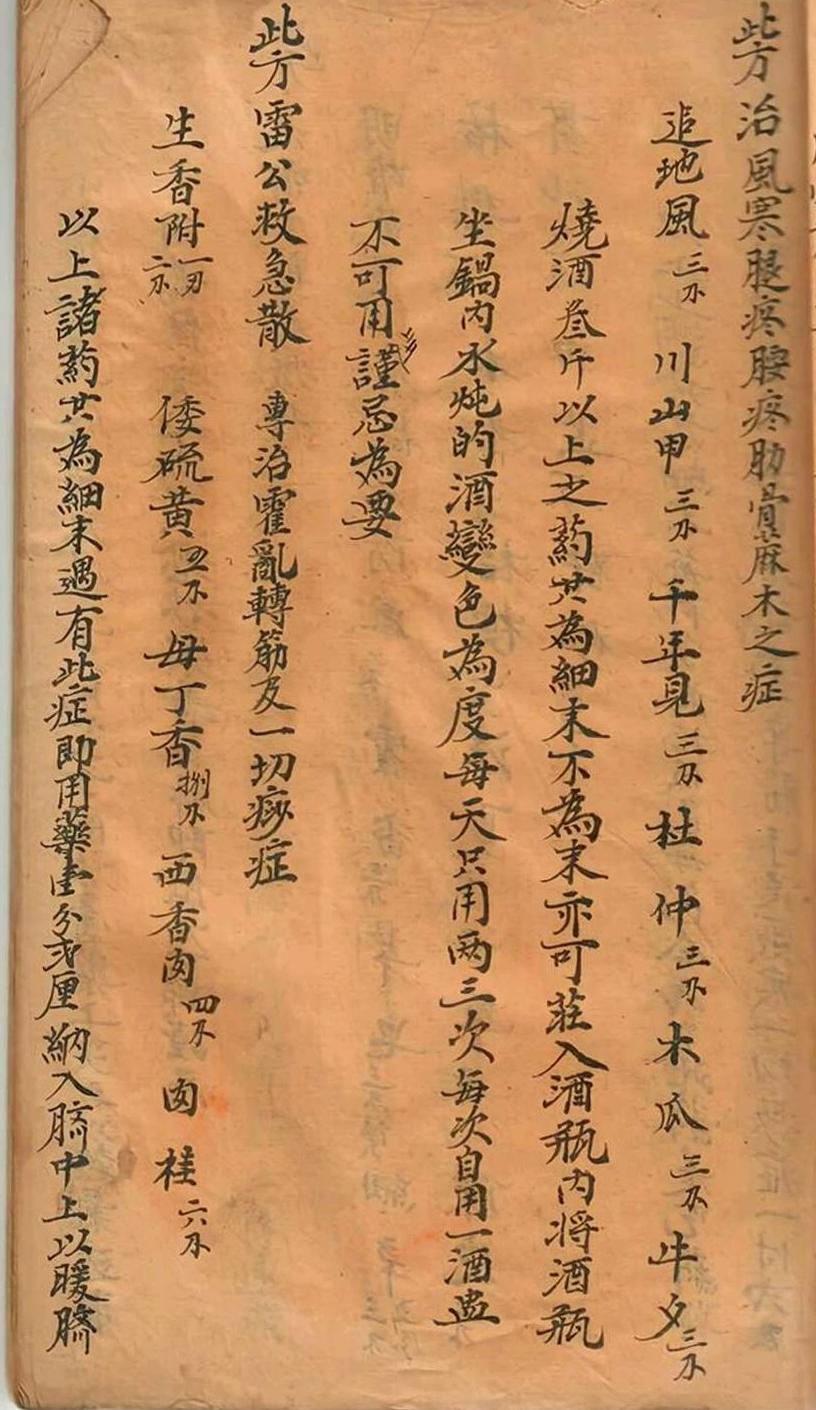 此方治風寒腿疼腰疼肋骨蔴木之症
追地風三錢 川山甲三錢 千年見三錢 杜仲三錢 木瓜三錢 牛夕三錢
燒酒叁斤以上之葯共為細末不為末亦可莊入酒瓶內将酒瓶
坐鍋內水炖的酒變色為度每天只用两三次每次自用一酒盅
不可用謹忌為要
此方雷公救急散 專治霍亂轉筋及一切痧症
生香附一两二錢 倭硫黄五錢 母丁香捌錢 西香肉四錢 肉桂六錢
以上諸葯共為細末遇有此症即用藥壹分弍厘納入臍中上以暖臍